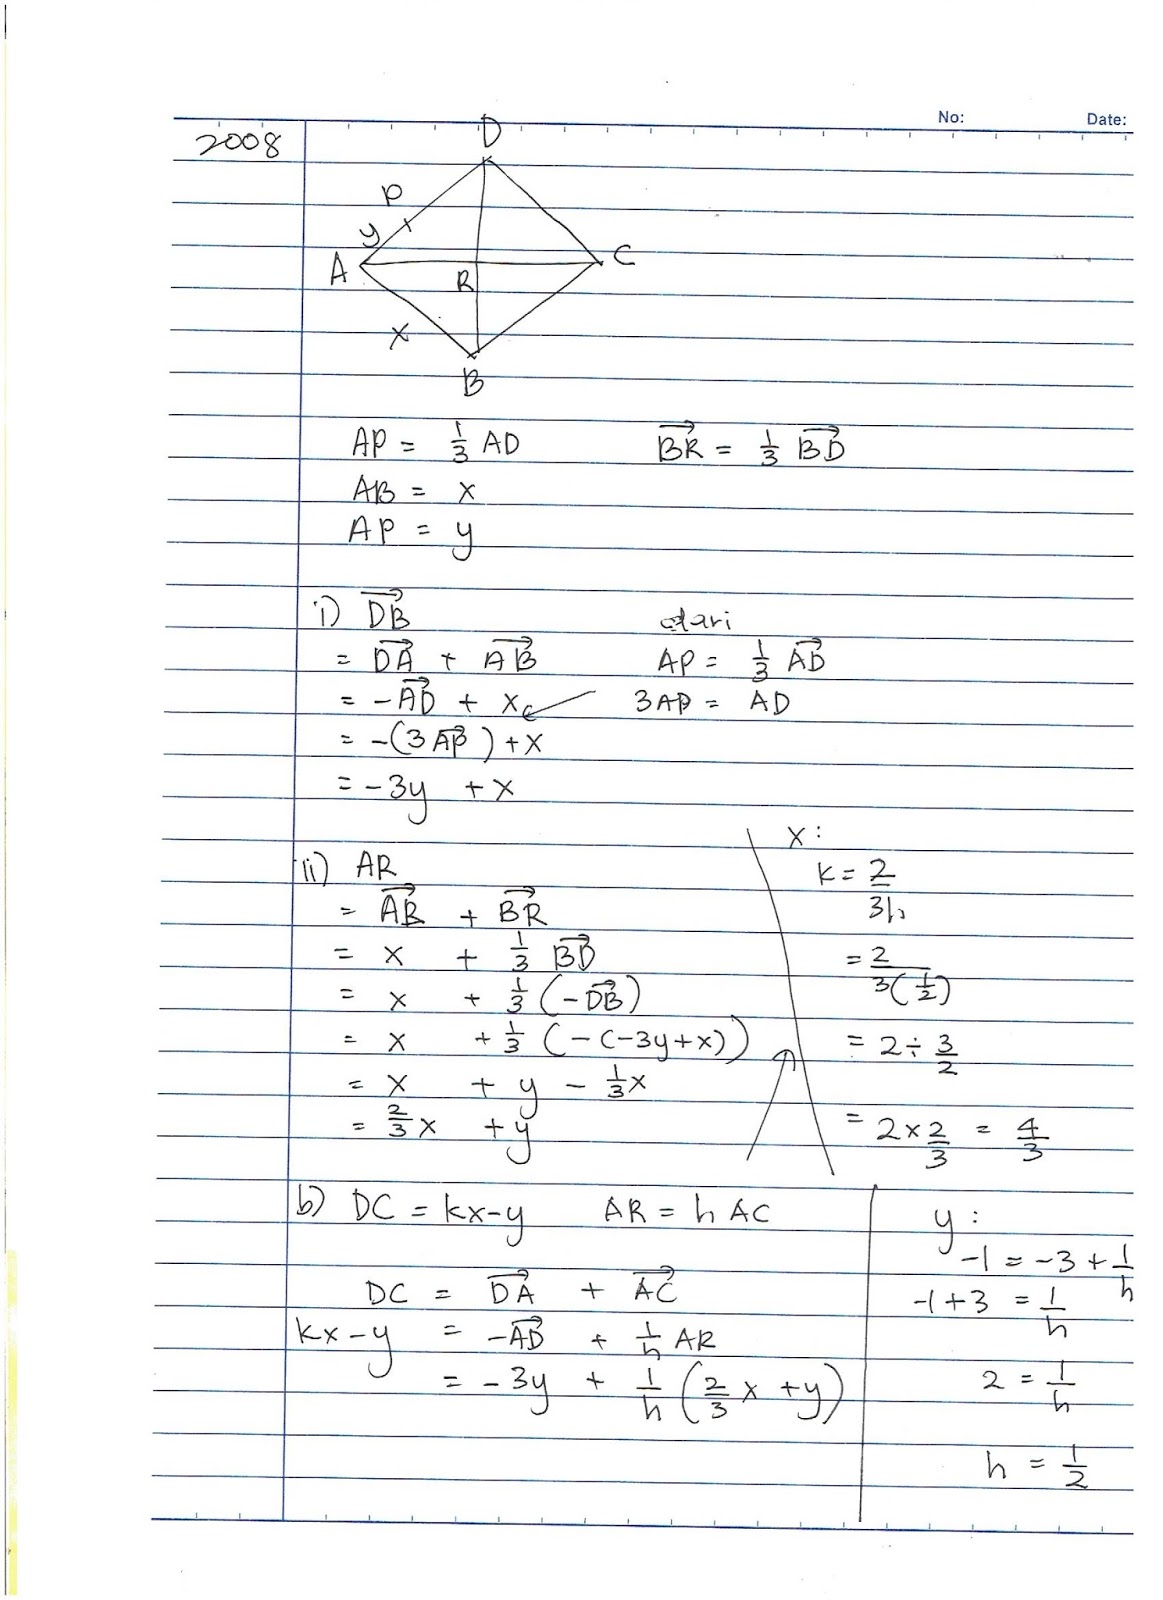 No: Date:
2008
D
P
y
A
R
C
x
B
AP = 1/3 AD
BR = 1/3 BD
AB = x
AP = y
i) DB
dari
= DA + AB
AP = 1/3 AD
= -AD + x
3AP = AD
= -(3AP) + x
= -3y + x
ii) AR
= AB + BR
= x + 1/3 BD
= x + 1/3 (-DB)
= x + 1/3 (-(-3y+x))
= x + y - 1/3x
= 2/3 x + y
x:
k = 2/3h
= 2/3(1/2)
= 2 ÷ 3/2
= 2 × 2/3 = 4/3
b) DC = kx-y AR = h AC
DC = DA + AC
kx-y = -AD + 1/h AR
= -3y + 1/h (2/3 x + y)
y:
-1 = -3 + 1/h
-1+3 = 1/h
2 = 1/h
h = 1/2